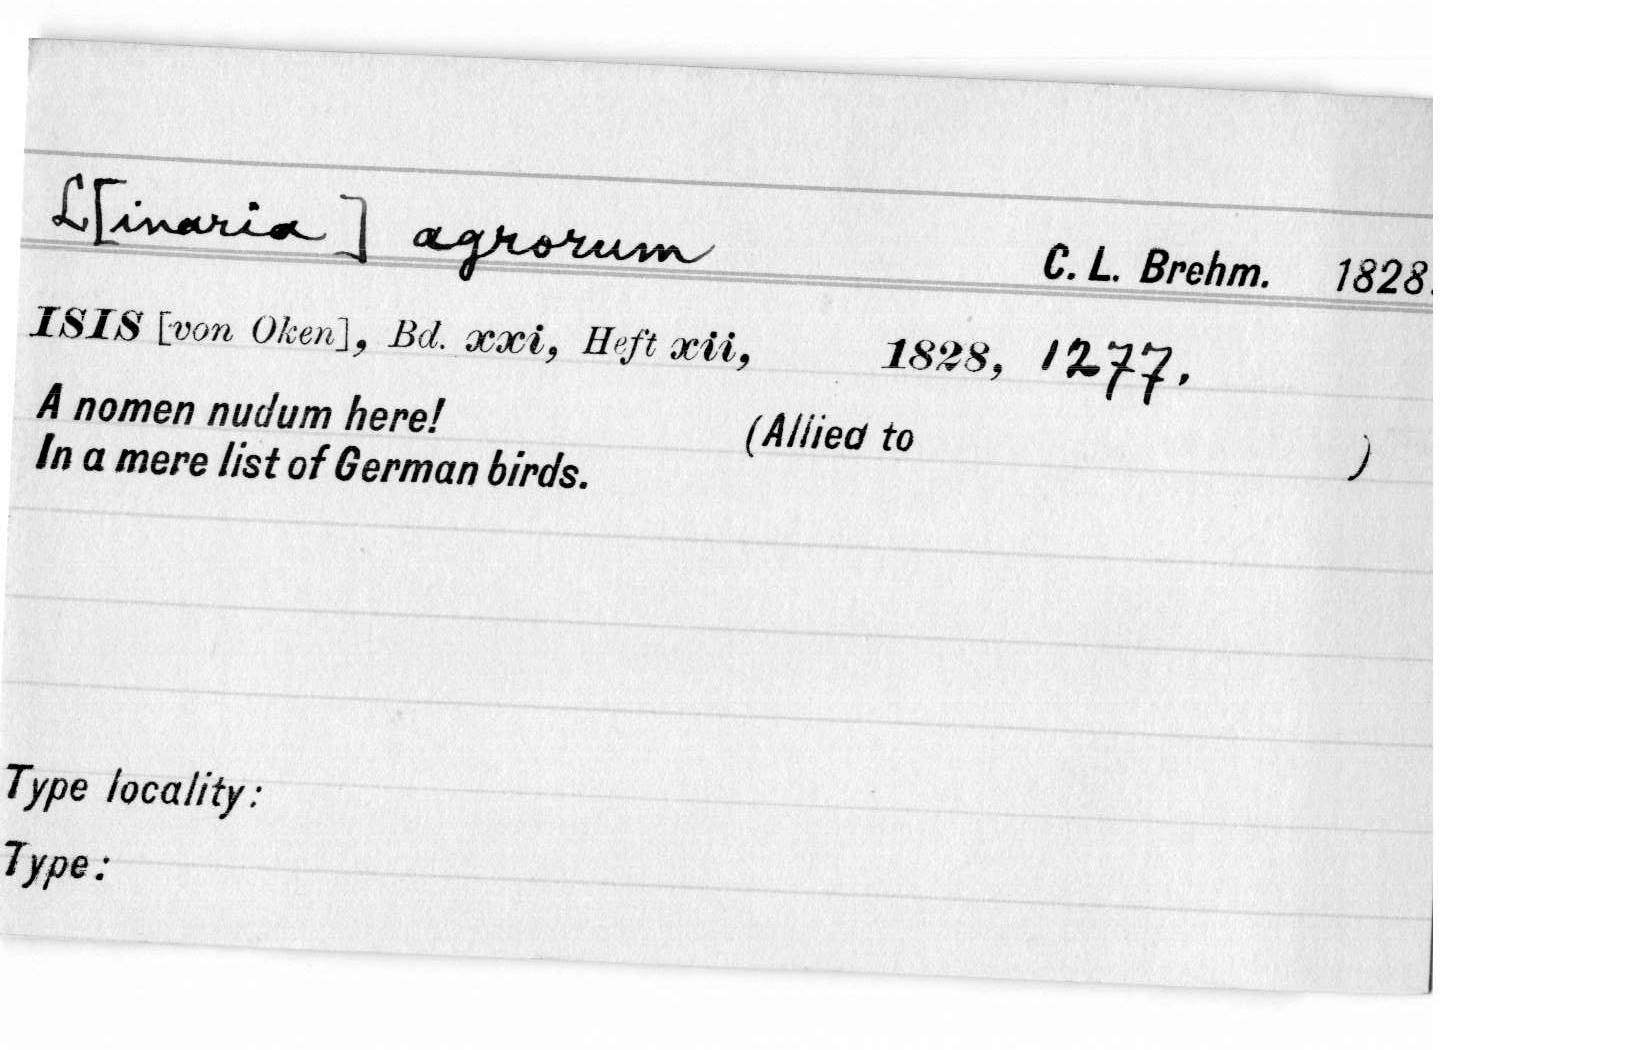 L[inaria] agrorum C. L. Brehm. 1828.
ISIS [von Oken], Bd. xxi, Heft xii, 1828, 1277.
A nomen nudum here! (Allied to )
In a mere list of German birds.
Type locality:
Type: